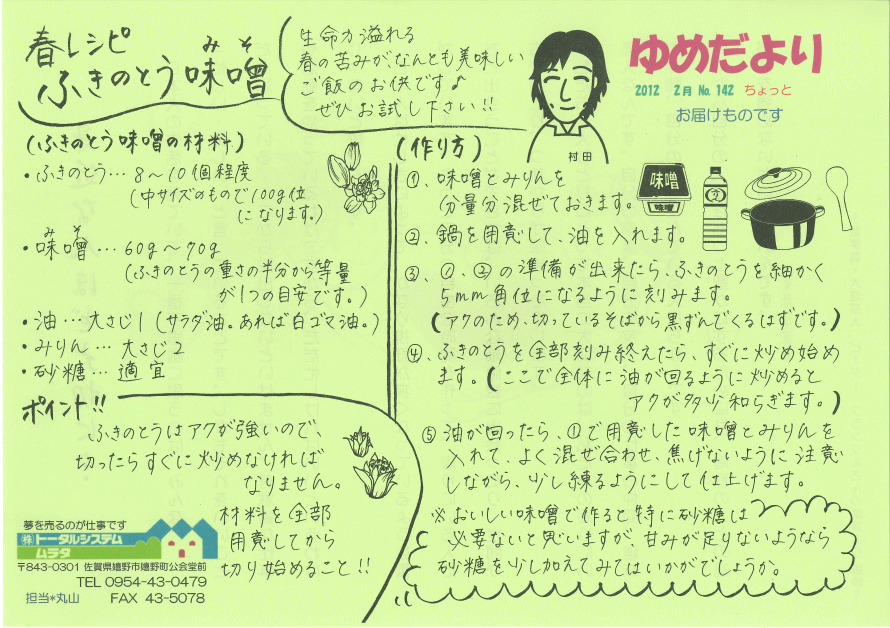 春レシピ
ふきのとう味噌
みそ
生命力溢れる
春の苦みが、なんとも美味しい
ご飯のお供です♪
ぜひお試し下さい!!
村田
ゆめだより
2012 2月 No. 142 ちょっと
お届けものです
(ふきのとう味噌の材料)
・ふきのとう…8〜10個程度
(中サイズのもので100g位
になります。)
みそ
・味噌…60g〜70g
(ふきのとうの重さの半分から等量
が1つの目安です。)
・油…大さじ1(サラダ油。あれば白ゴマ油。)
・みりん…大さじ2
・砂糖…適宜
ポイント!!
ふきのとうはアクが強いので、
切ったらすぐに炒めなければ
なりません。
材料を全部
用意してから
切り始めること!!
(作り方)
①、味噌とみりんを
分量分混ぜておきます。
味噌
味噌
②、鍋を用意して、油を入れます。
③、①、②の準備が出来たら、ふきのとうを細かく
5mm角位になるように刻みます。
(アクのため、切っているそばから黒ずんでくるはずです。)
④、ふきのとうを全部刻み終えたら、すぐに炒め始め
ます。(ここで全体に油が回るように炒めると
アクが多少和らぎます。)
⑤、油が回ったら、①で用意した味噌とみりんを
入れて、よく混ぜ合わせ、焦げないように注意
しながら、少し練るようにして仕上げます。
※おいしい味噌で作ると特に砂糖は
必要ないと思いますが、甘みが足りないようなら
砂糖を少し加えてみてはいかがでしょうか。
夢を売るのが仕事です
㈱トータルシステム
ムラタ
〒843-0301 佐賀県嬉野市嬉野町公会堂前
TEL 0954-43-0479
担当*丸山 FAX 43-5078